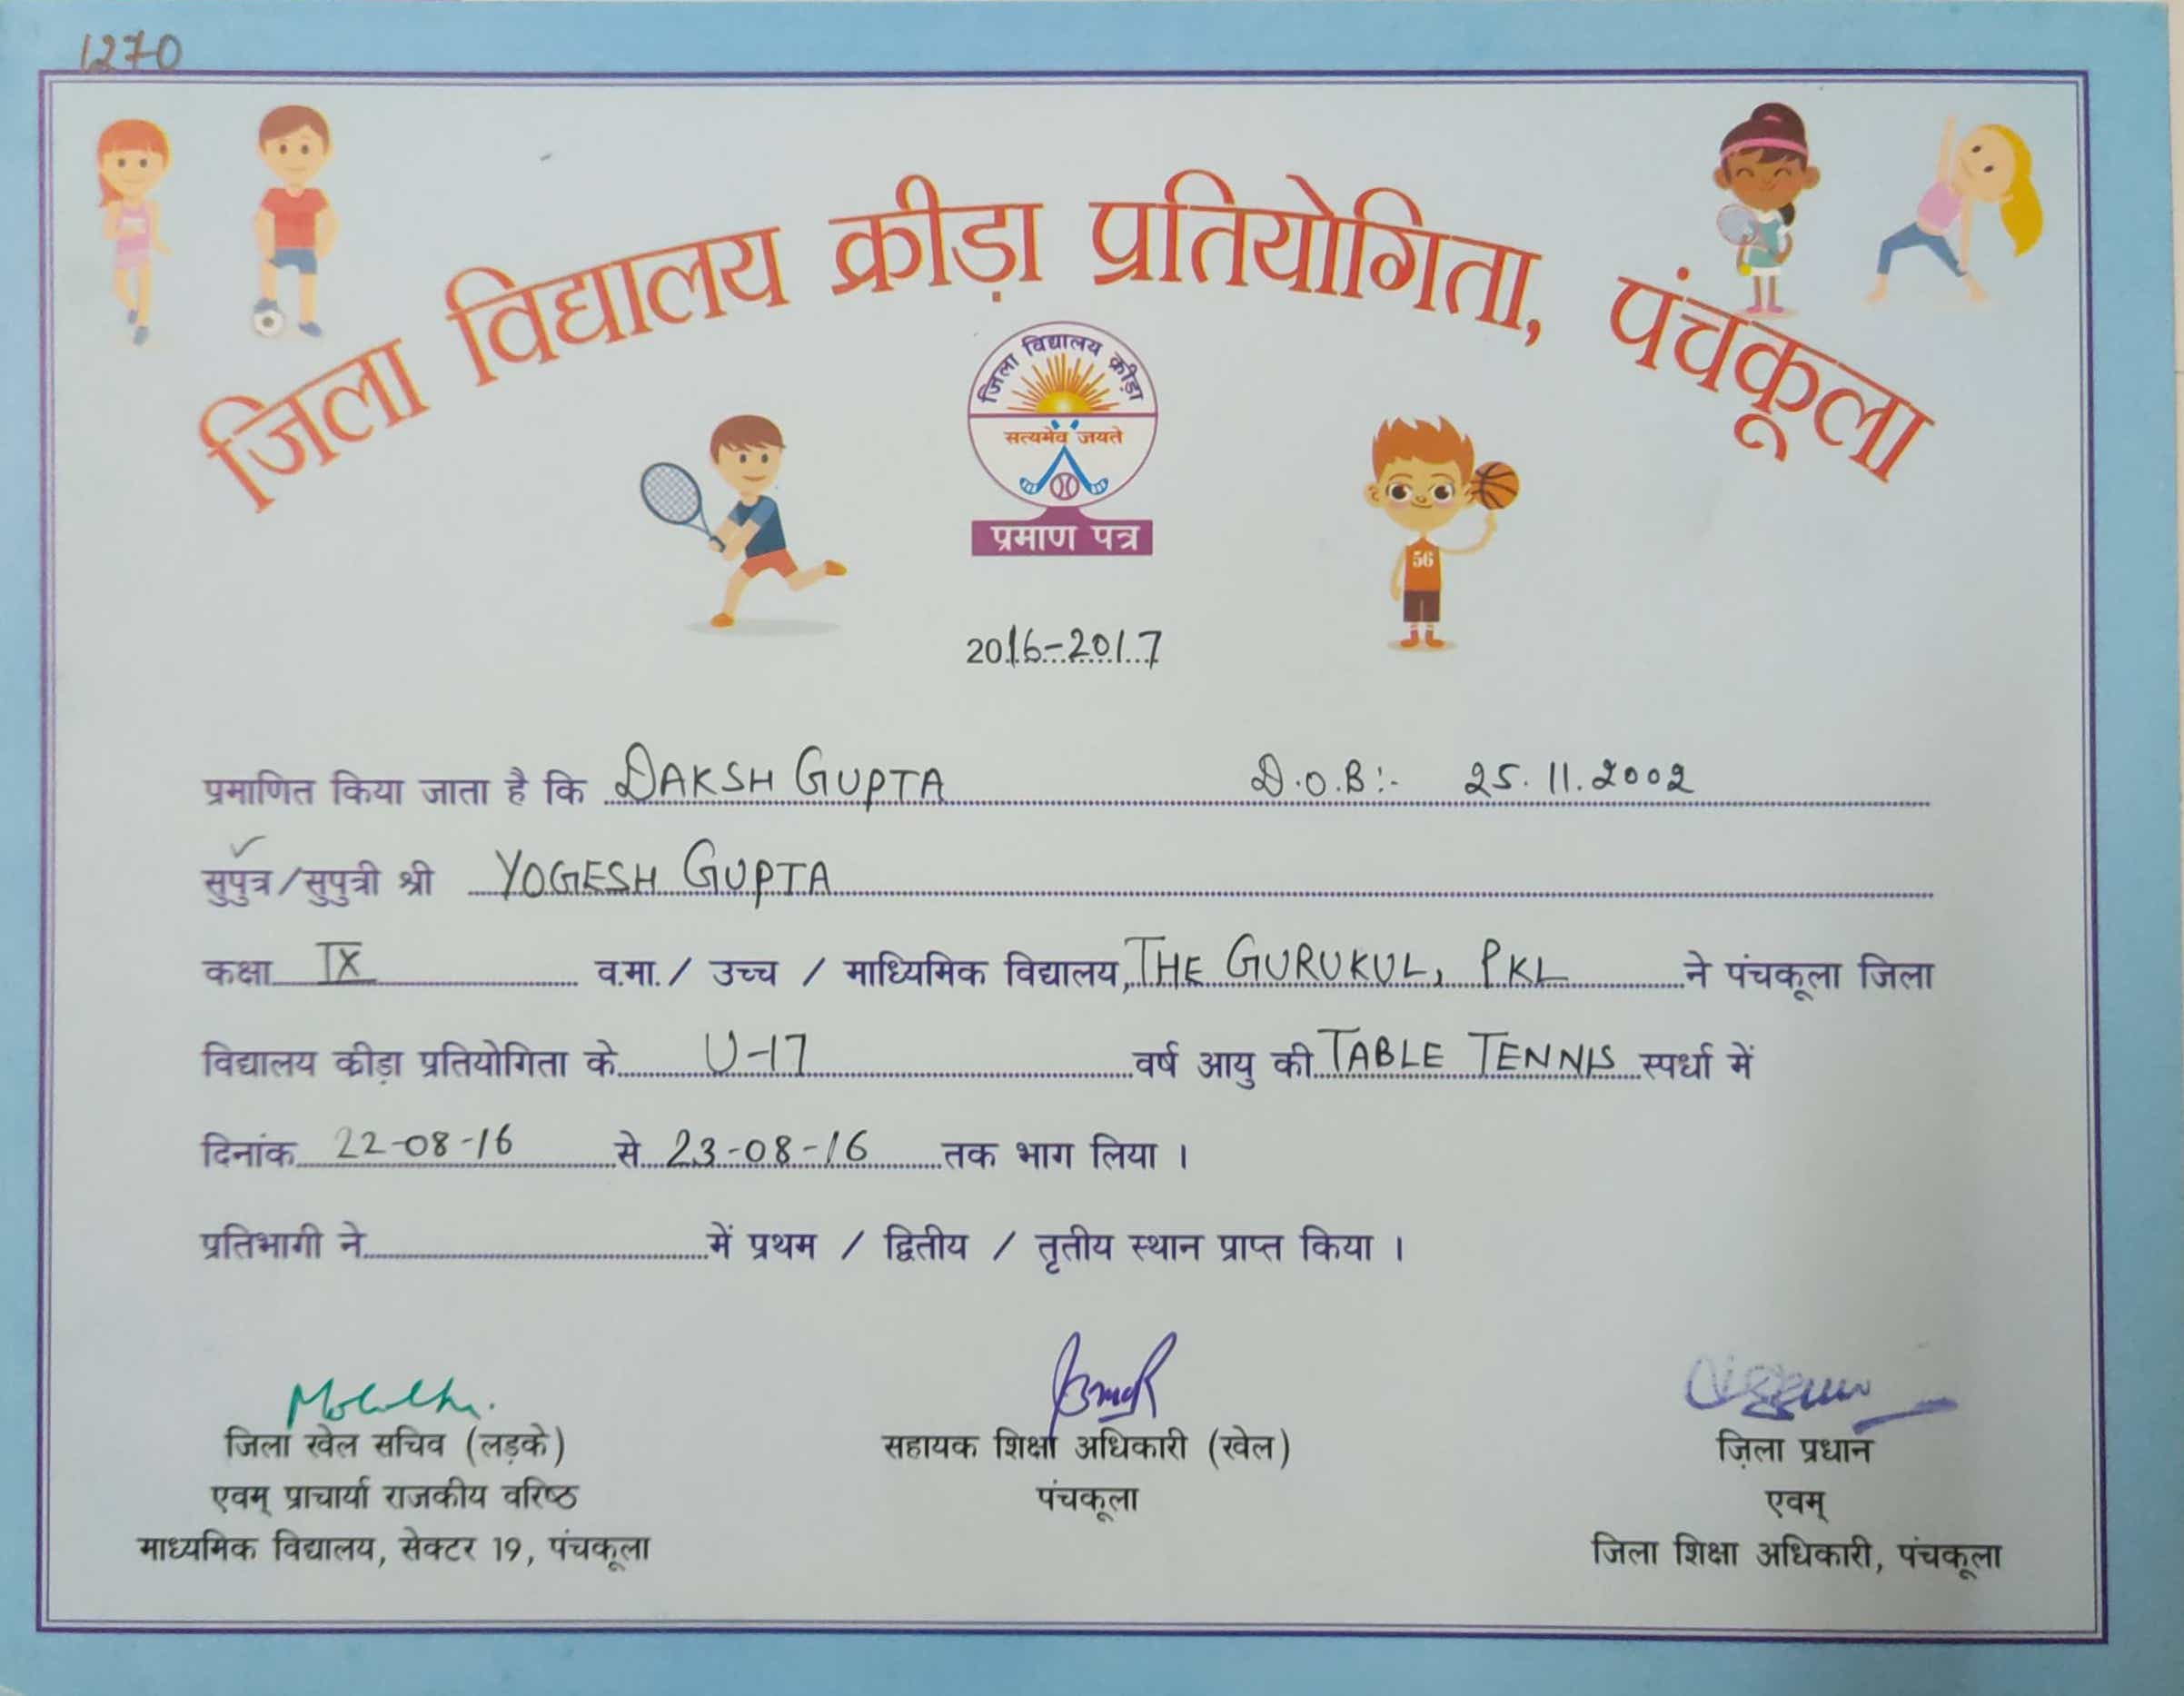 1270
जिला विद्यालय क्रीड़ा प्रतियोगिता, पंचकूला
जिला विद्यालय क्रीड़ा
सत्यमेव जयते
प्रमाण पत्र
56
2016-2017
प्रमाणित किया जाता है कि DAKSH GUPTA D.O.B:- 25.11.2002
सुपुत्र/सुपुत्री श्री YOGESH GUPTA
कक्षा IX व.मा. / उच्च / माध्यिमिक विद्यालय, THE GURUKUL, PKL ने पंचकूला जिला
विद्यालय कीड़ा प्रतियोगिता के U-17 वर्ष आयु की TABLE TENNIS स्पर्धा में
दिनांक 22-08-16 से 23-08-16 तक भाग लिया ।
प्रतिभागी ने में प्रथम / द्वितीय / तृतीय स्थान प्राप्त किया ।
जिला खेल सचिव (लड़के)
एवम् प्राचार्या राजकीय वरिष्ठ
माध्यमिक विद्यालय, सेक्टर 19, पंचकूला
सहायक शिक्षा अधिकारी (खेल)
पंचकूला
ज़िला प्रधान
एवम्
जिला शिक्षा अधिकारी, पंचकूला